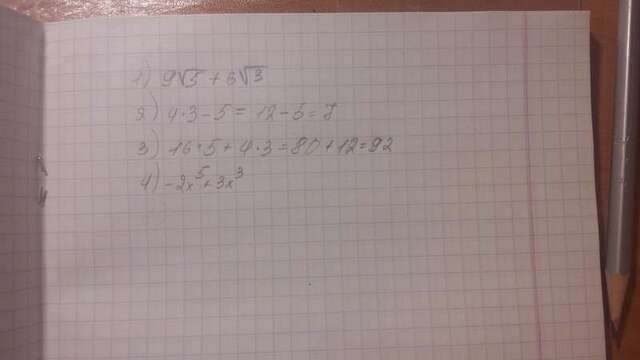 1) 9√5 + 6√3
2) 4·3-5 = 12-5=7
3) 16·5+4·3=80+12=92
4) -2x⁵+3x³